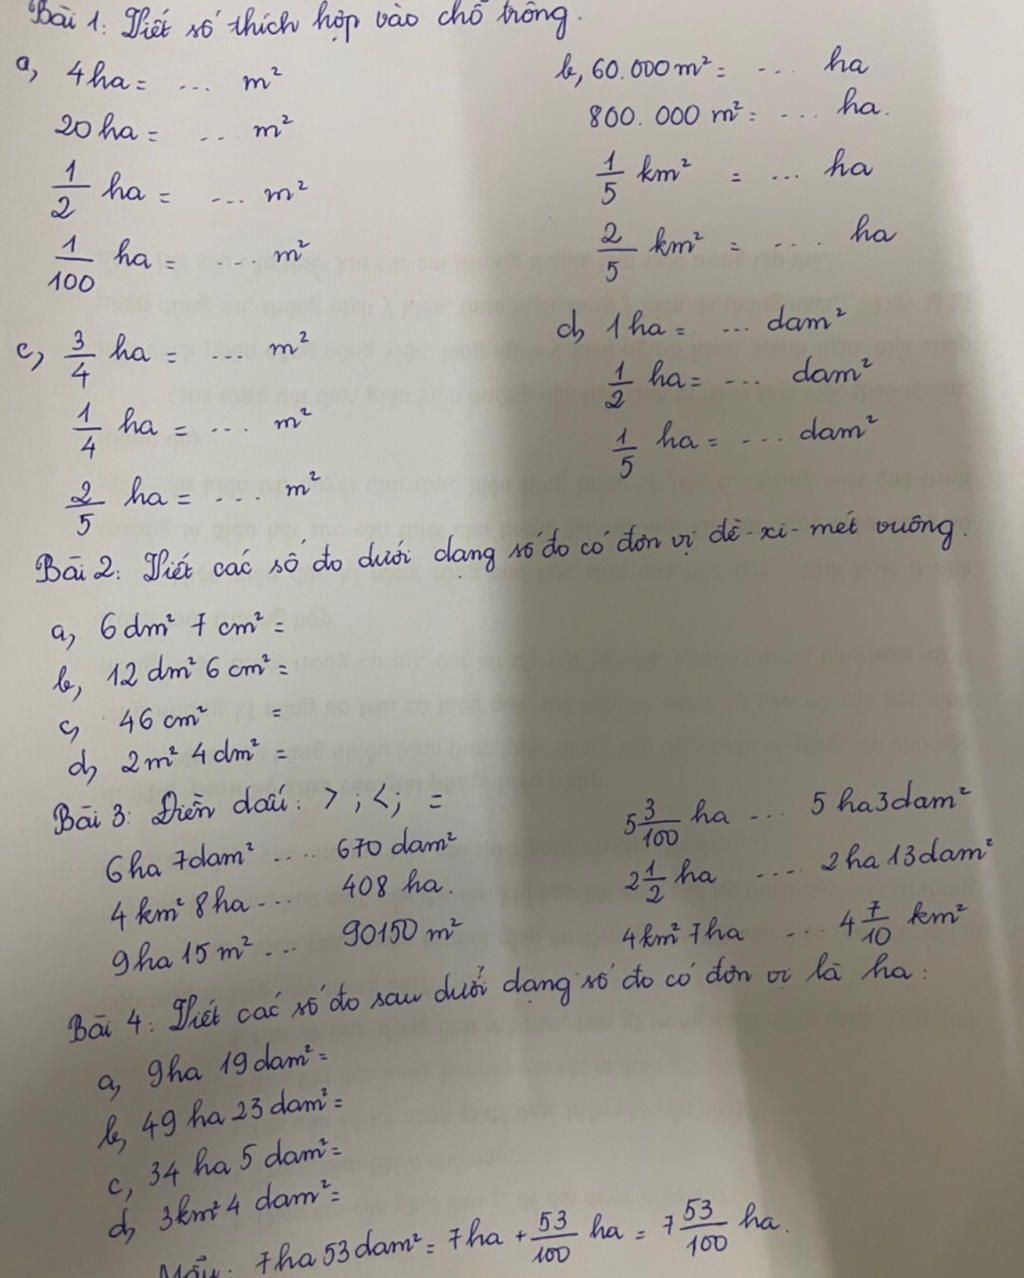 Bài 1: Viết số thích hợp vào chỗ trống.
a, 4ha = ... m²
20 ha = ... m²
1/2 ha = ... m²
1/100 ha = .... m²
b, 60.000 m² = ... ha
800.000 m² = ... ha.
1/5 km² = ... ha
2/5 km² = .... ha
c, 3/4 ha = .... m²
1/4 ha = .... m²
2/5 ha = .... m²
d, 1 ha = ... dam²
1/2 ha = ... dam²
1/5 ha = ... dam²
Bài 2: Viết các số đo dưới dạng số đo có đơn vị đề-xi-mét vuông.
a, 6 dm² 7 cm² =
b, 12 dm² 6 cm² =
c, 46 cm² =
d, 2 m² 4 dm² =
Bài 3: Điền dấu: > ; < ; =
6ha 7dam² .... 670 dam²
4 km² 8 ha ... 408 ha.
9 ha 15 m² ... 90150 m²
5 3/100 ha ... 5 ha 3dam²
2 1/2 ha .... 2 ha 13dam²
4km² 7ha ... 4 7/10 km²
Bài 4: Viết các số đo sau dưới dạng số đo có đơn vị là ha:
a, 9ha 19 dam² =
b, 49 ha 23 dam² =
c, 34 ha 5 dam² =
d, 3km² 4 dam² =
Mẫu: 7ha 53 dam² = 7ha + 53/100 ha = 7 53/100 ha.